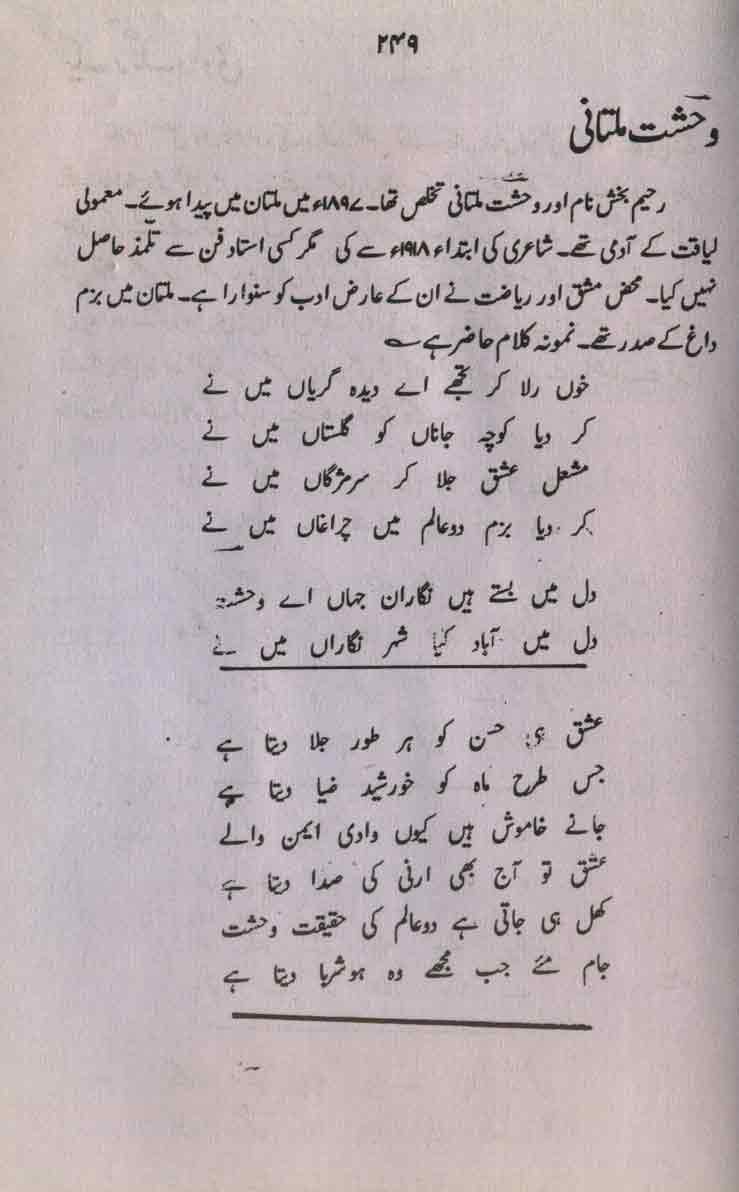 ۲۴۹
وحشت ملتانی
رحیم بخش نام اور وحشت ملتانی تخلص تھا۔ ۱۸۹۷ء میں ملتان میں پیدا ہوئے۔ معمولی
لیاقت کے آدمی تھے۔ شاعری کی ابتداء ۱۹۱۸ء سے کی مگر کسی استاد فن سے تلمّذ حاصل
نہیں کیا۔ محض مشق اور ریاضت نے ان کے عارض ادب کو سنوارا ہے۔ ملتان میں بزم
داغ کے صدر تھے۔ نمونہ کلام حاضر ہے
خوں رلا کر تجھے اے دیدہ گریاں میں نے
کر دیا کوچہ جاناں کو گلستاں میں نے
مشعل عشق جلا کر سرمژگاں میں نے
کر دیا بزم دوعالم میں چراغاں میں نے
دل میں بستے ہیں نگاران جہاں اے وحشت
دل میں آباد کیا شہر نگاراں میں نے
عشق ہی حسن کو ہر طور جلا دیتا ہے
جس طرح ماہ کو خورشید ضیا دیتا ہے
جانے خاموش ہیں کیوں وادی ایمن والے
عشق تو آج بھی ارنی کی صدا دیتا ہے
کھل ہی جاتی ہے دوعالم کی حقیقت وحشت
جام مئے جب مجھے وہ ہوشربا دیتا ہے